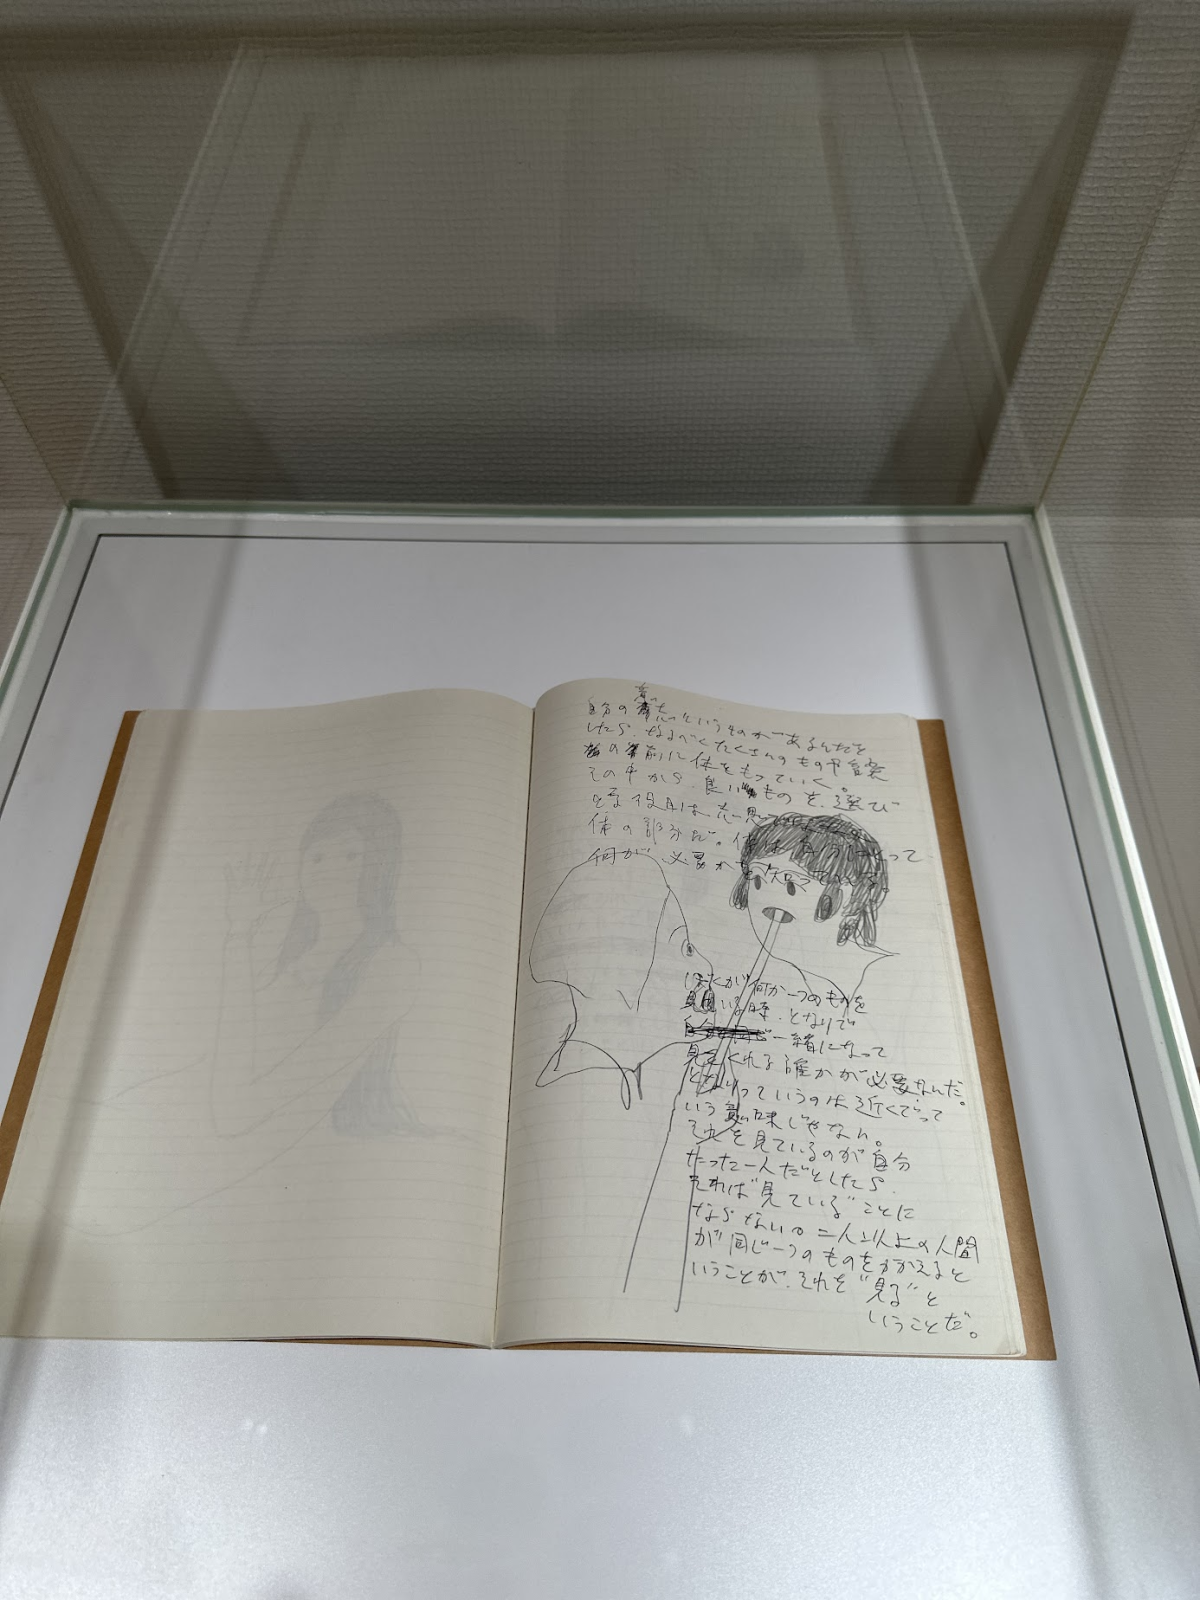 自分の意志というものがあるんだと
したら、なるべくたくさんのものや音楽
の前に体をもっていく。
その中から、良いものを、選び
とる役目は意志
体の部分だ。体は自分にとって
何が必要かを知っている。
ぼくが何か一つのものを
見ている時、となりで
一緒になって
見てくれる誰かが必要なんだ。
となりっていうのは近くでって
いう意味じゃない。
それを見ているのが自分
たった一人だとしたら、
それは"見ている"ことに
ならない。二人以上の人間
が同じ一つのものをかかえると
いうことが、それを"見る"と
いうことだ。